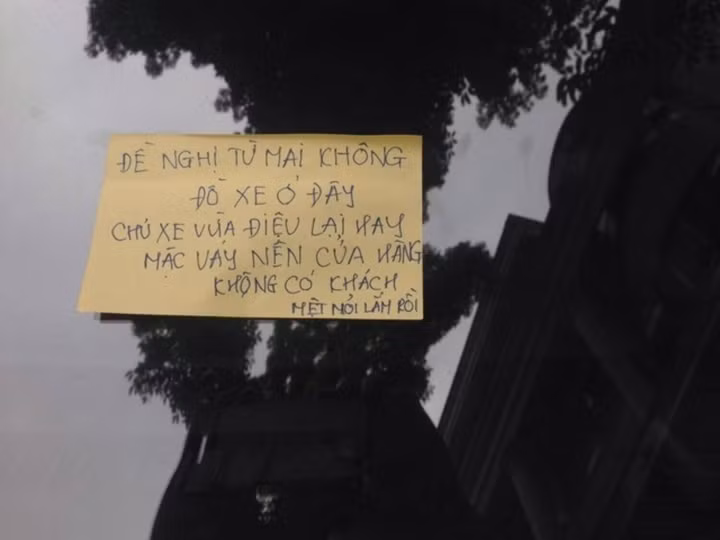 ĐỀ NGHỊ TỪ MAI KHÔNG
ĐỖ XE Ở ĐÂY
CHỦ XE VỪA ĐIỆU LẠI HAY
MẶC VÁY NÊN CỬA HÀNG
KHÔNG CÓ KHÁCH
MỆT MỎI LẮM RỒI